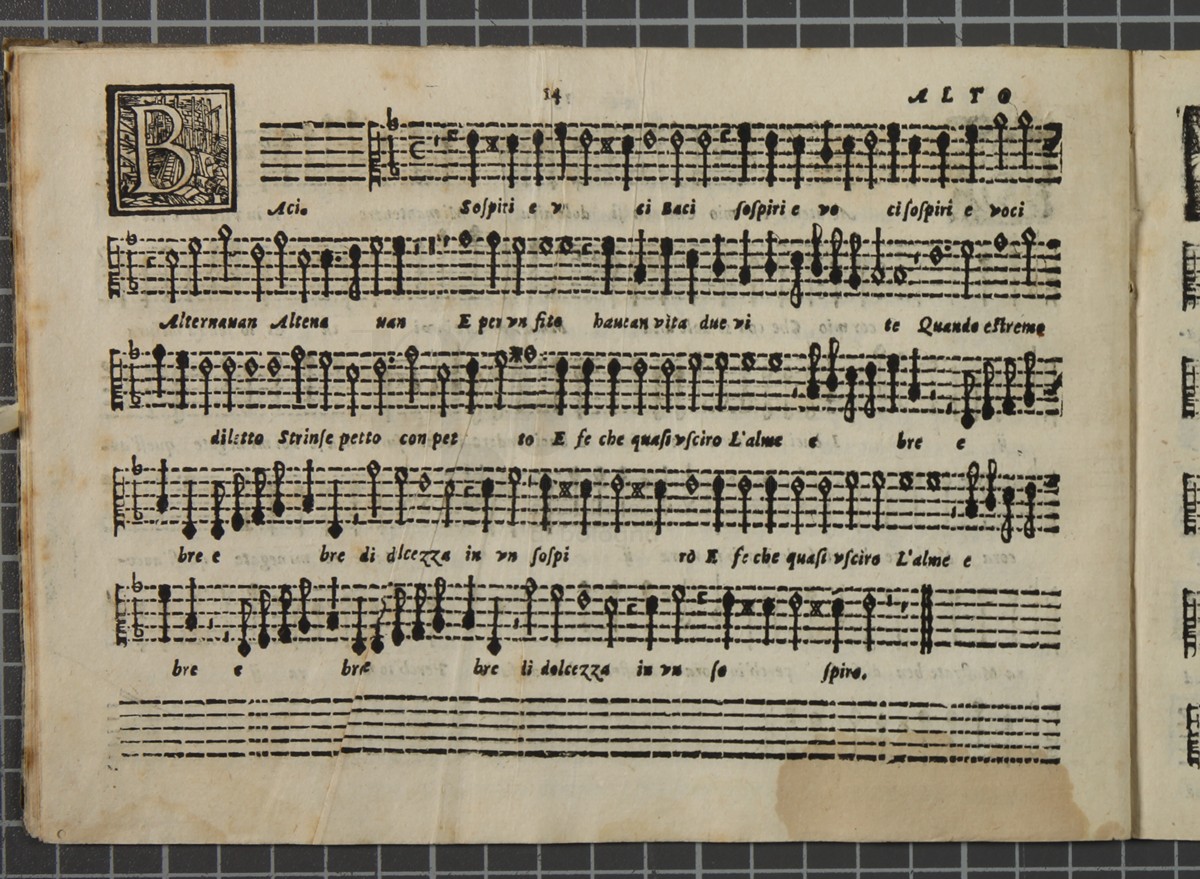 14 ALTO
BAci. Soſpiri e v ci Baci ſoſpiri e vo ci ſoſpiri e voci
Alternauan Altena uan E per vn fito haucan vita due vi te Quando eſtremo
diletto Strinſe petto con pet to E fe che quaſi vſciro L'alme e bre e
bre e bre di dlcezza in vn ſoſpi rò E fe che quaſi vſciro L'alme e
bre e bre bre li dolcezza in vn ſo ſpiro.